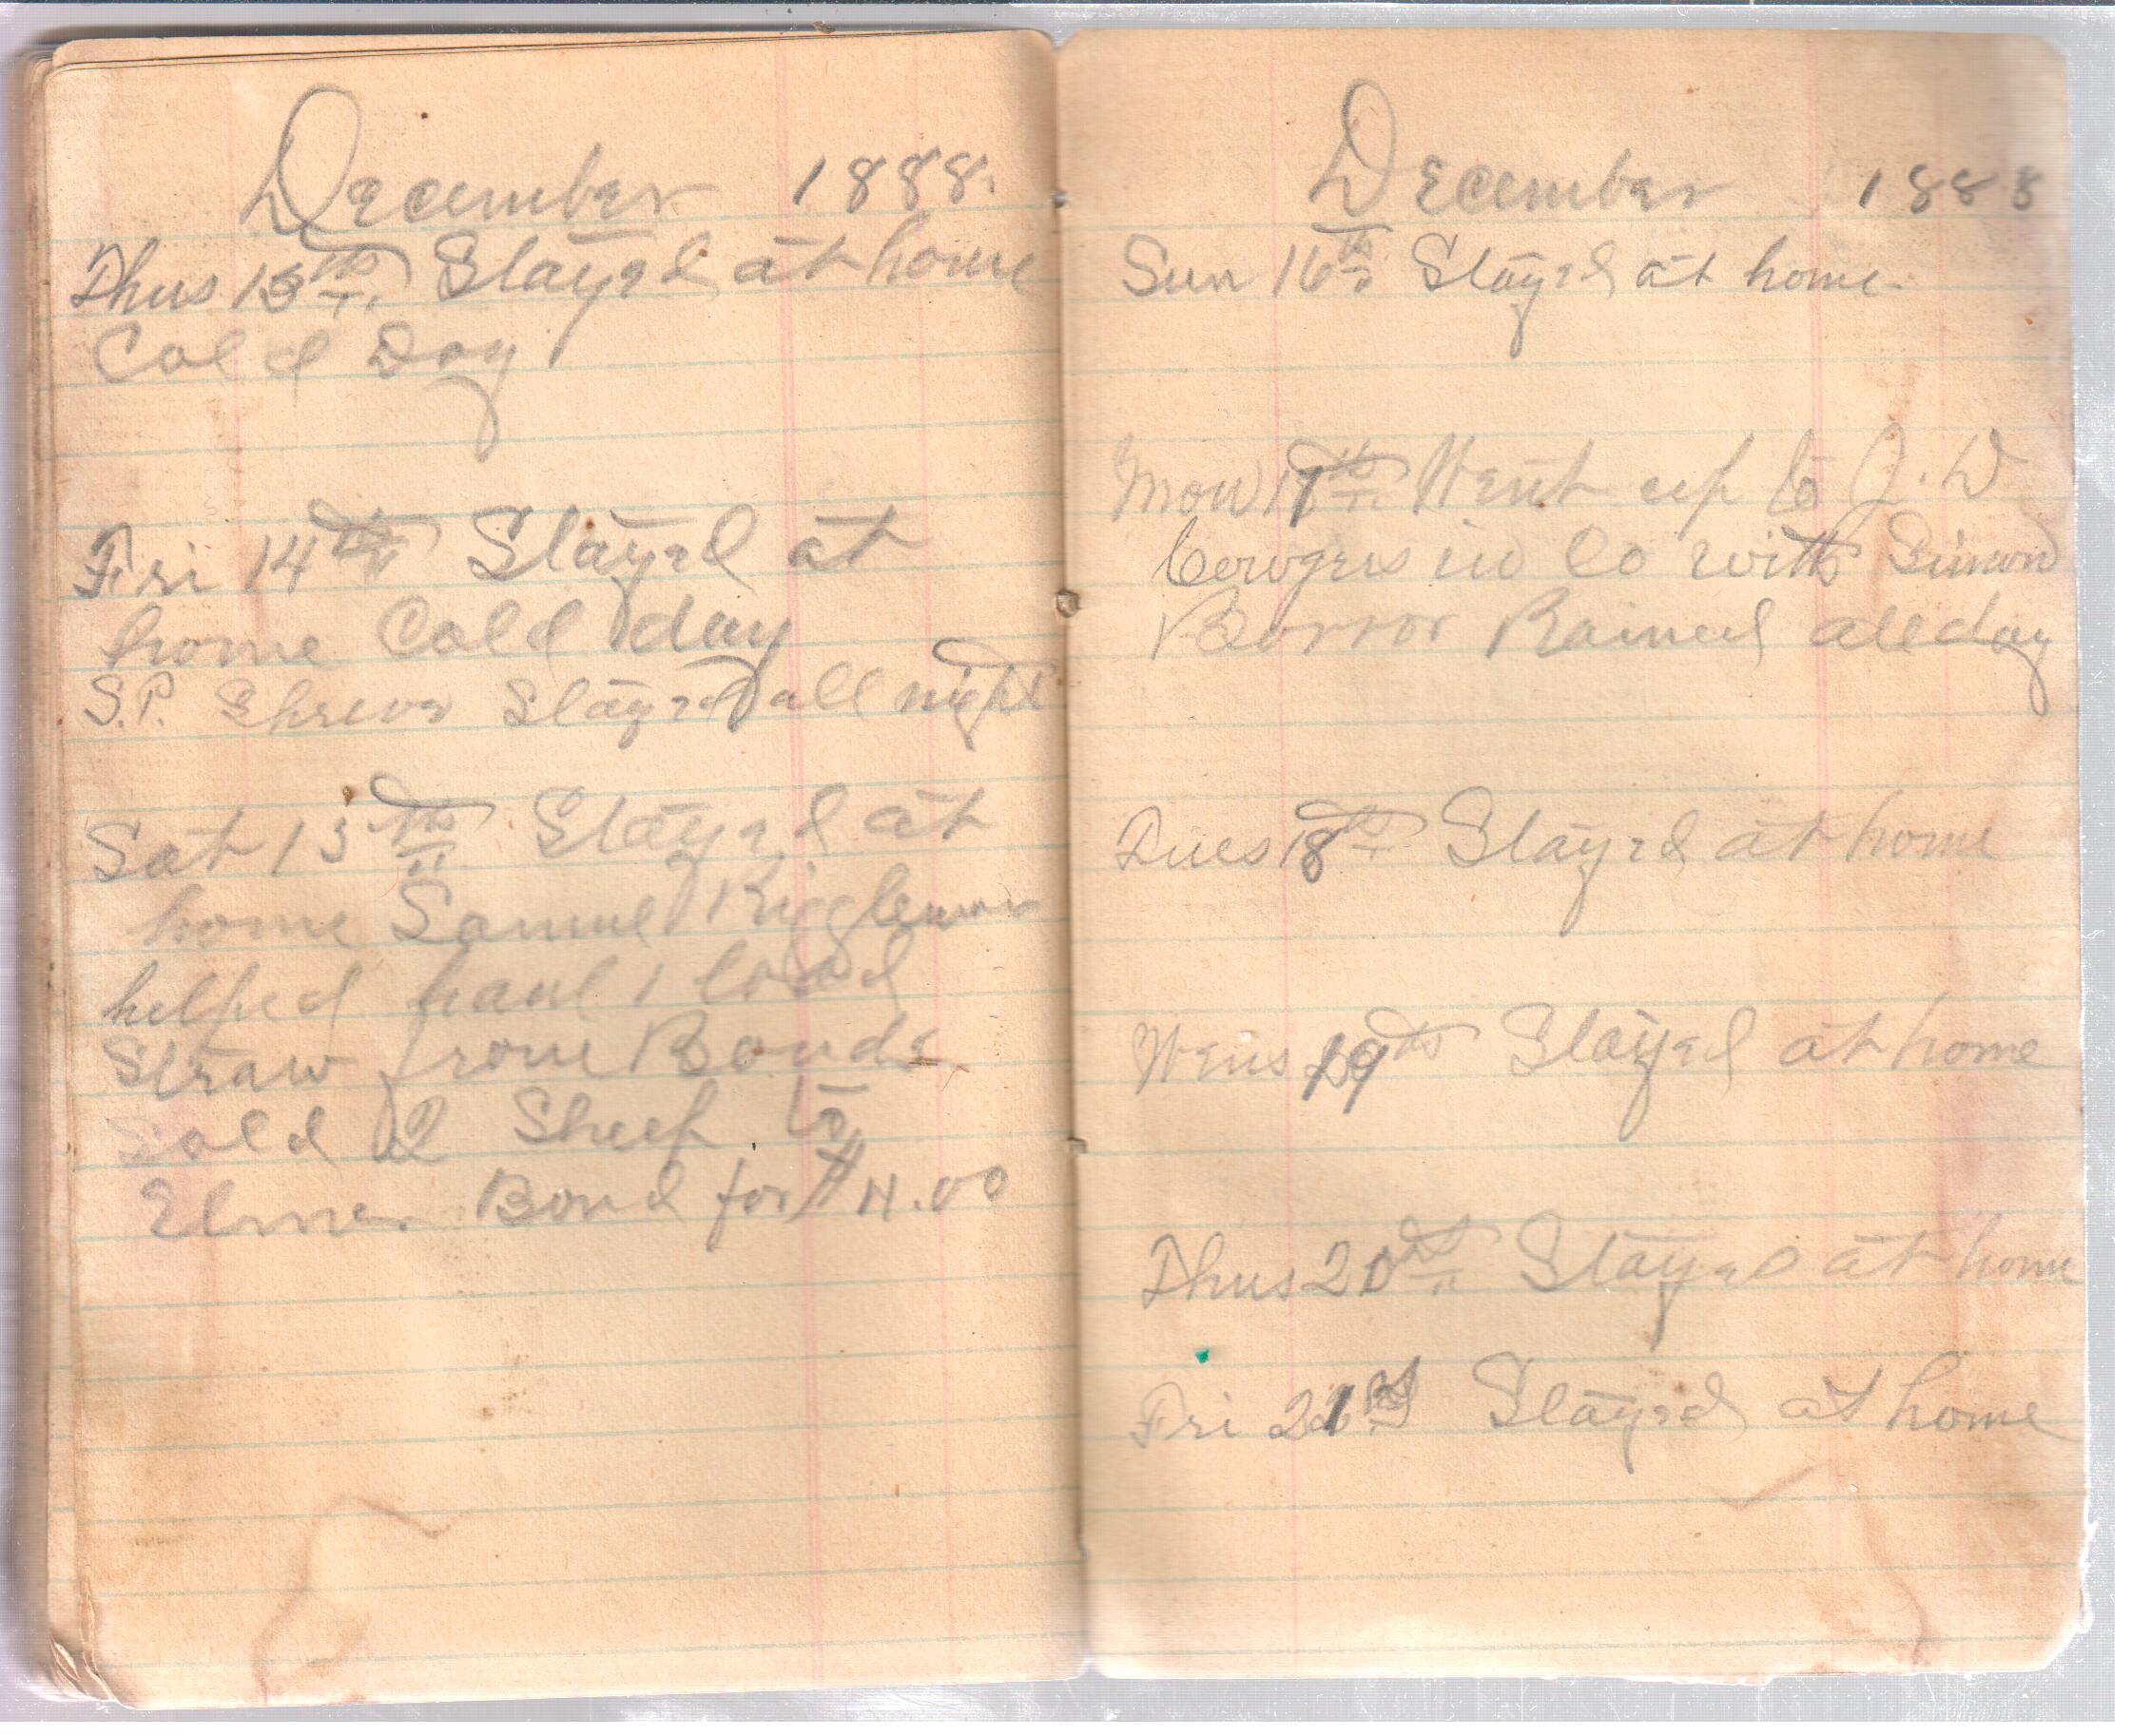 December 1888.
Thus 13th Stayed at home
Cold Day
Fri 14th Stayed at
home Cold day
S.P. Shreve Stayed all night
Sat 15th Stayed at
home Samuel Riggleman
helped haul 1 load
Straw from Bonds
Sold 2 Sheep to
Elmer Bond for $4.00
December 1888
Sun 16th Stayed at home.
Mon 17th Went up to J. W
Cowgers in Co with Simon
Borror Rained all day
Tues 18th Stayed at home
Wens 19th Stayed at home
Thus 20th Stayed at home
Fri 21st Stayed at home